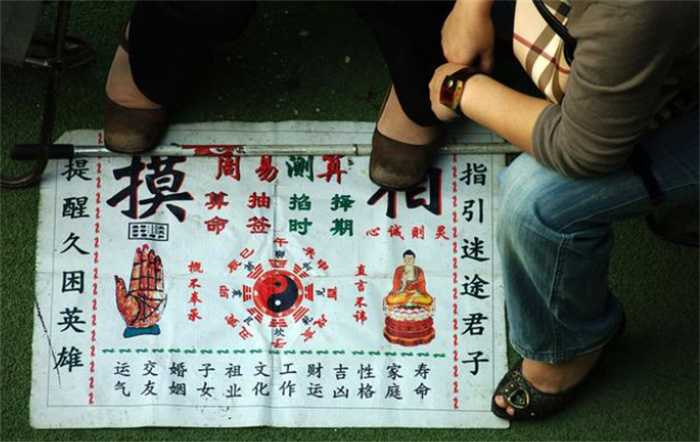 周易测算
摸 相
算命 抽签 掐时 择期
心诚则灵
提醒久困英雄
指引迷途君子
概不奉承
直言不讳
午
辰 巳
卯
运气 交友 婚姻 子女 祖业 文化 工作 财运 吉凶 性格 家庭 寿命